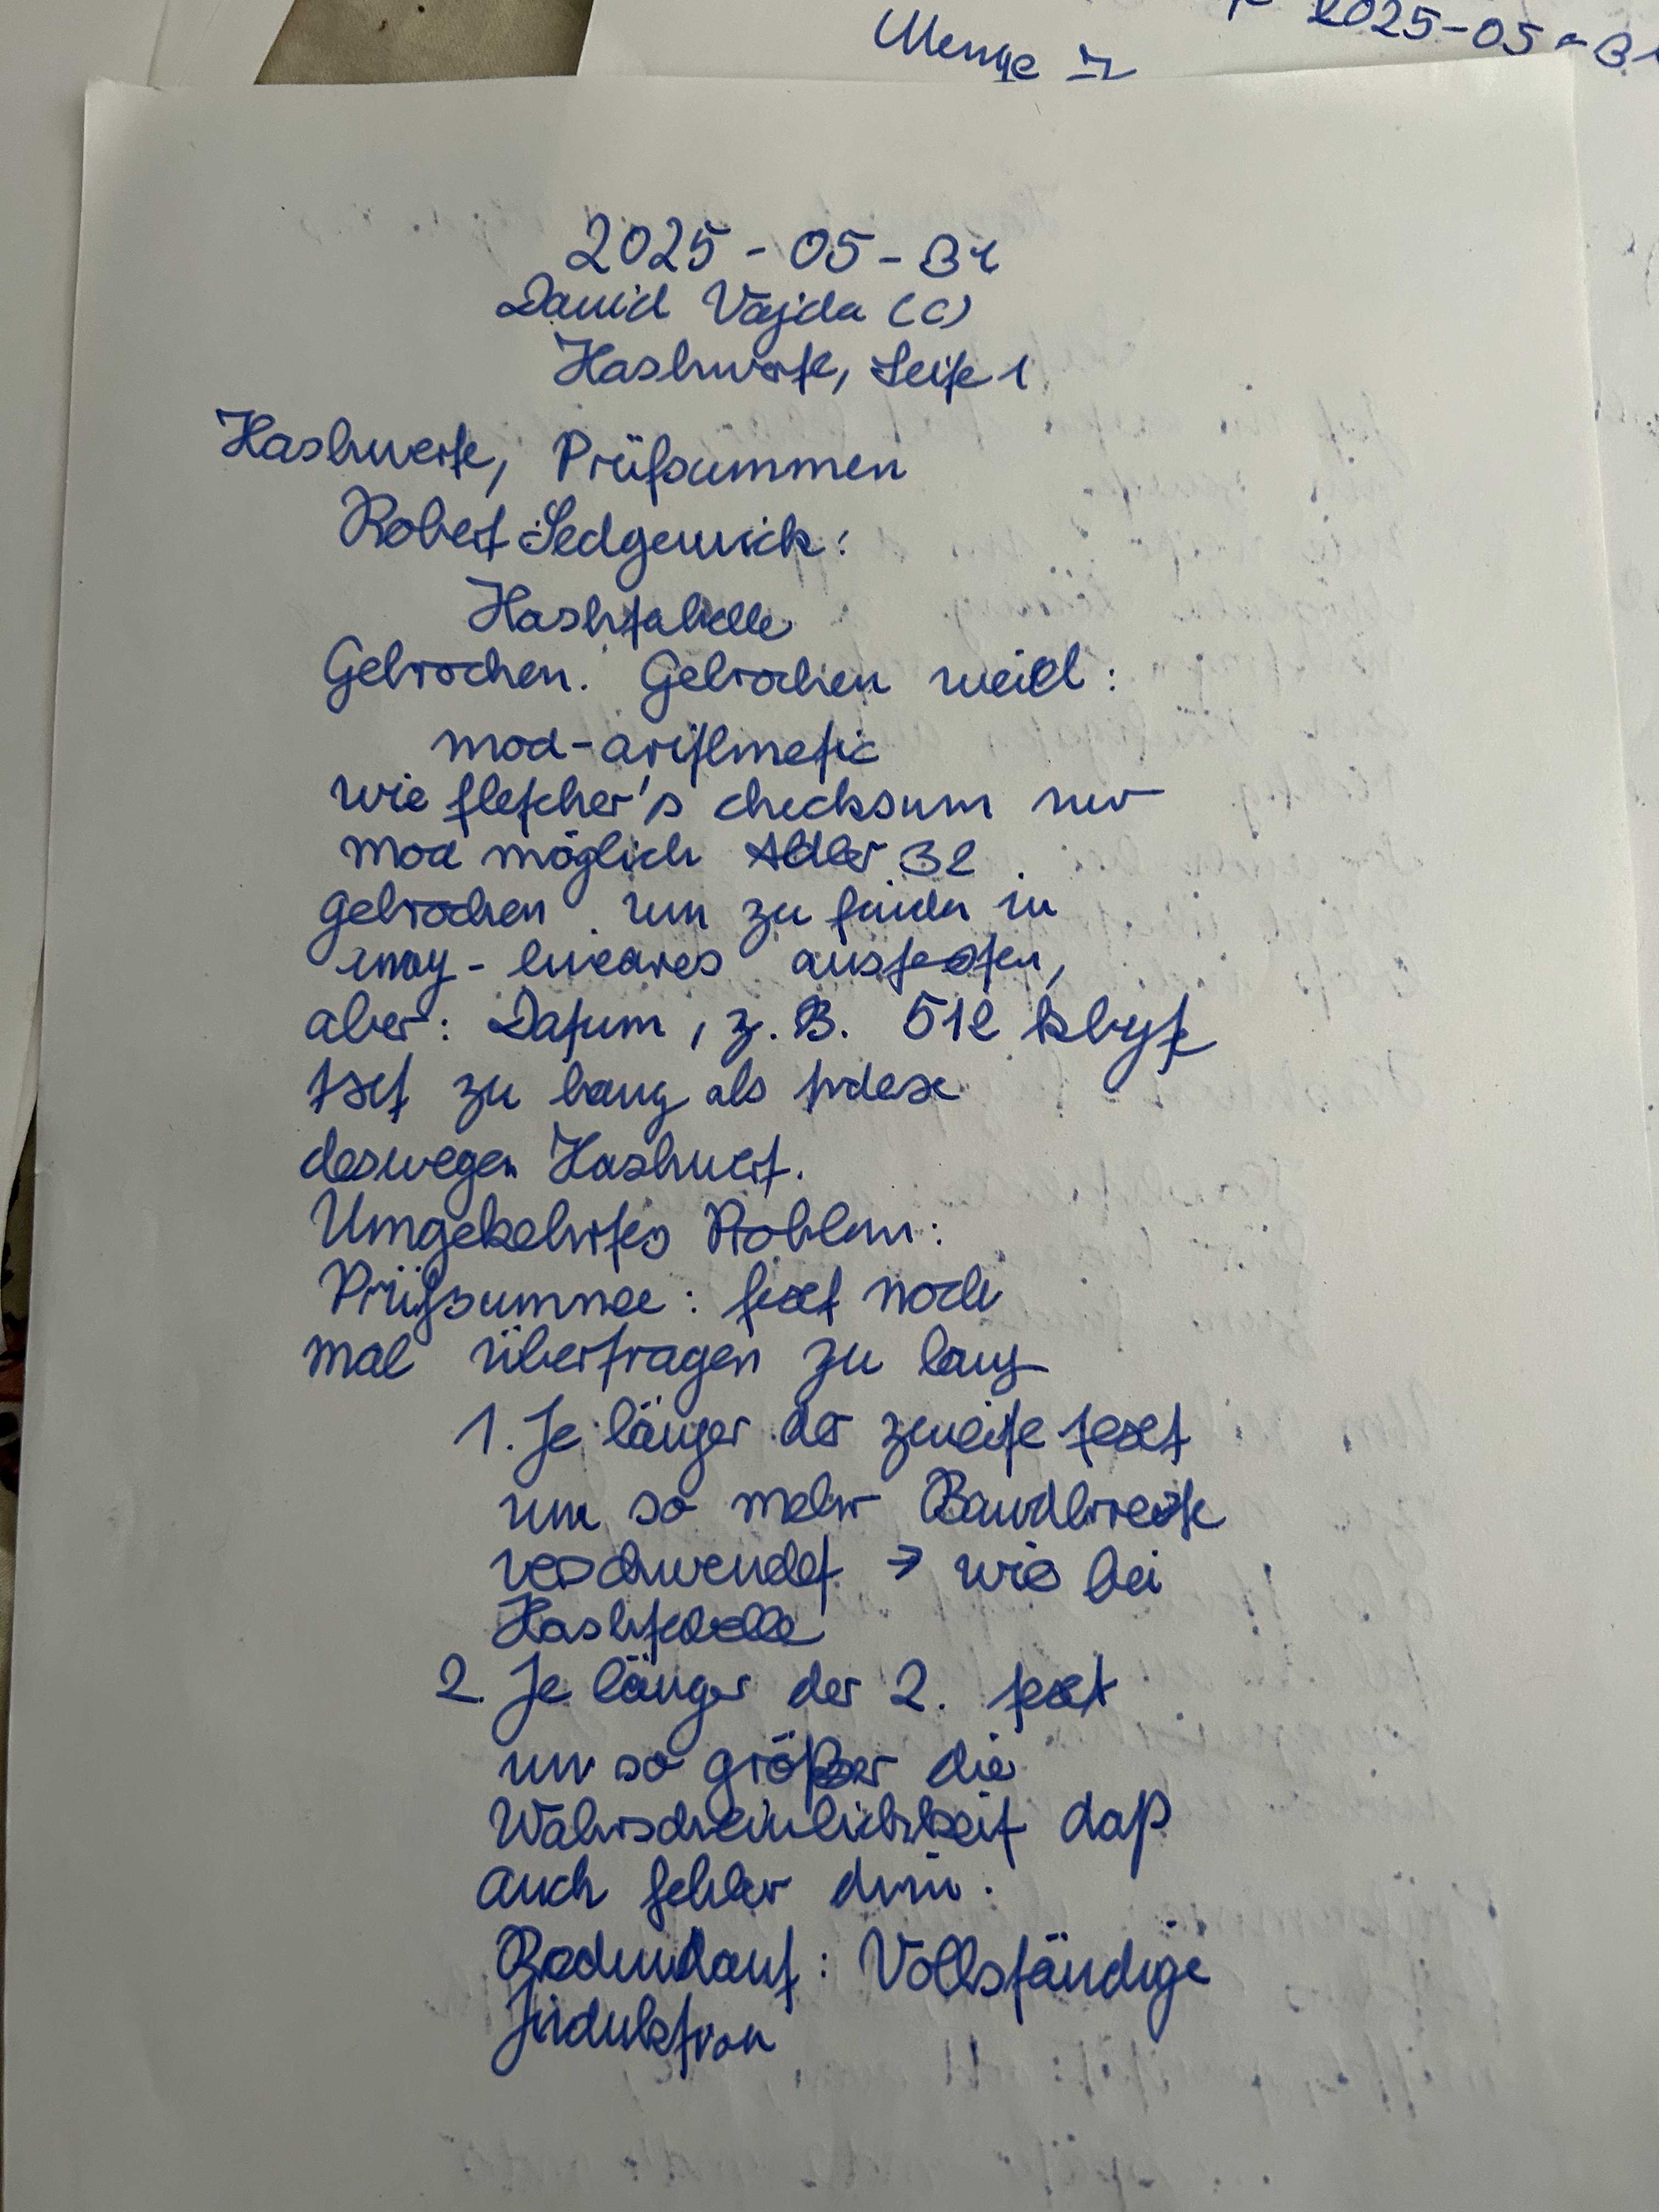 2025-05-31
Menge
2025-05-31
David Vajda (C)
Hashwerte, Seite 1
Hashwerte, Prüfsummen
Robert Sedgewick:
Hashtabelle
Gebrochen. Gebrochen weil:
mod-arithmetic
wie fletcher's checksum nur
mod möglich Adler 32
gebrochen um zu finden in
array - lineares austesten,
aber: Datum, z.B. 512 kbyte
Ist zu lang als Index
deswegen Hashwert.
Umgekehrtes Problem:
Prüfsumme: Text noch
mal übertragen zu lang
1. Je länger der zweite Text
um so mehr Bandbreite
verschwendet → wie bei
Hashtabelle
2. Je länger der 2. Text
um so größer die
Wahrscheinlichkeit daß
auch Fehler drin.
Redundant: Vollständige
Induktion